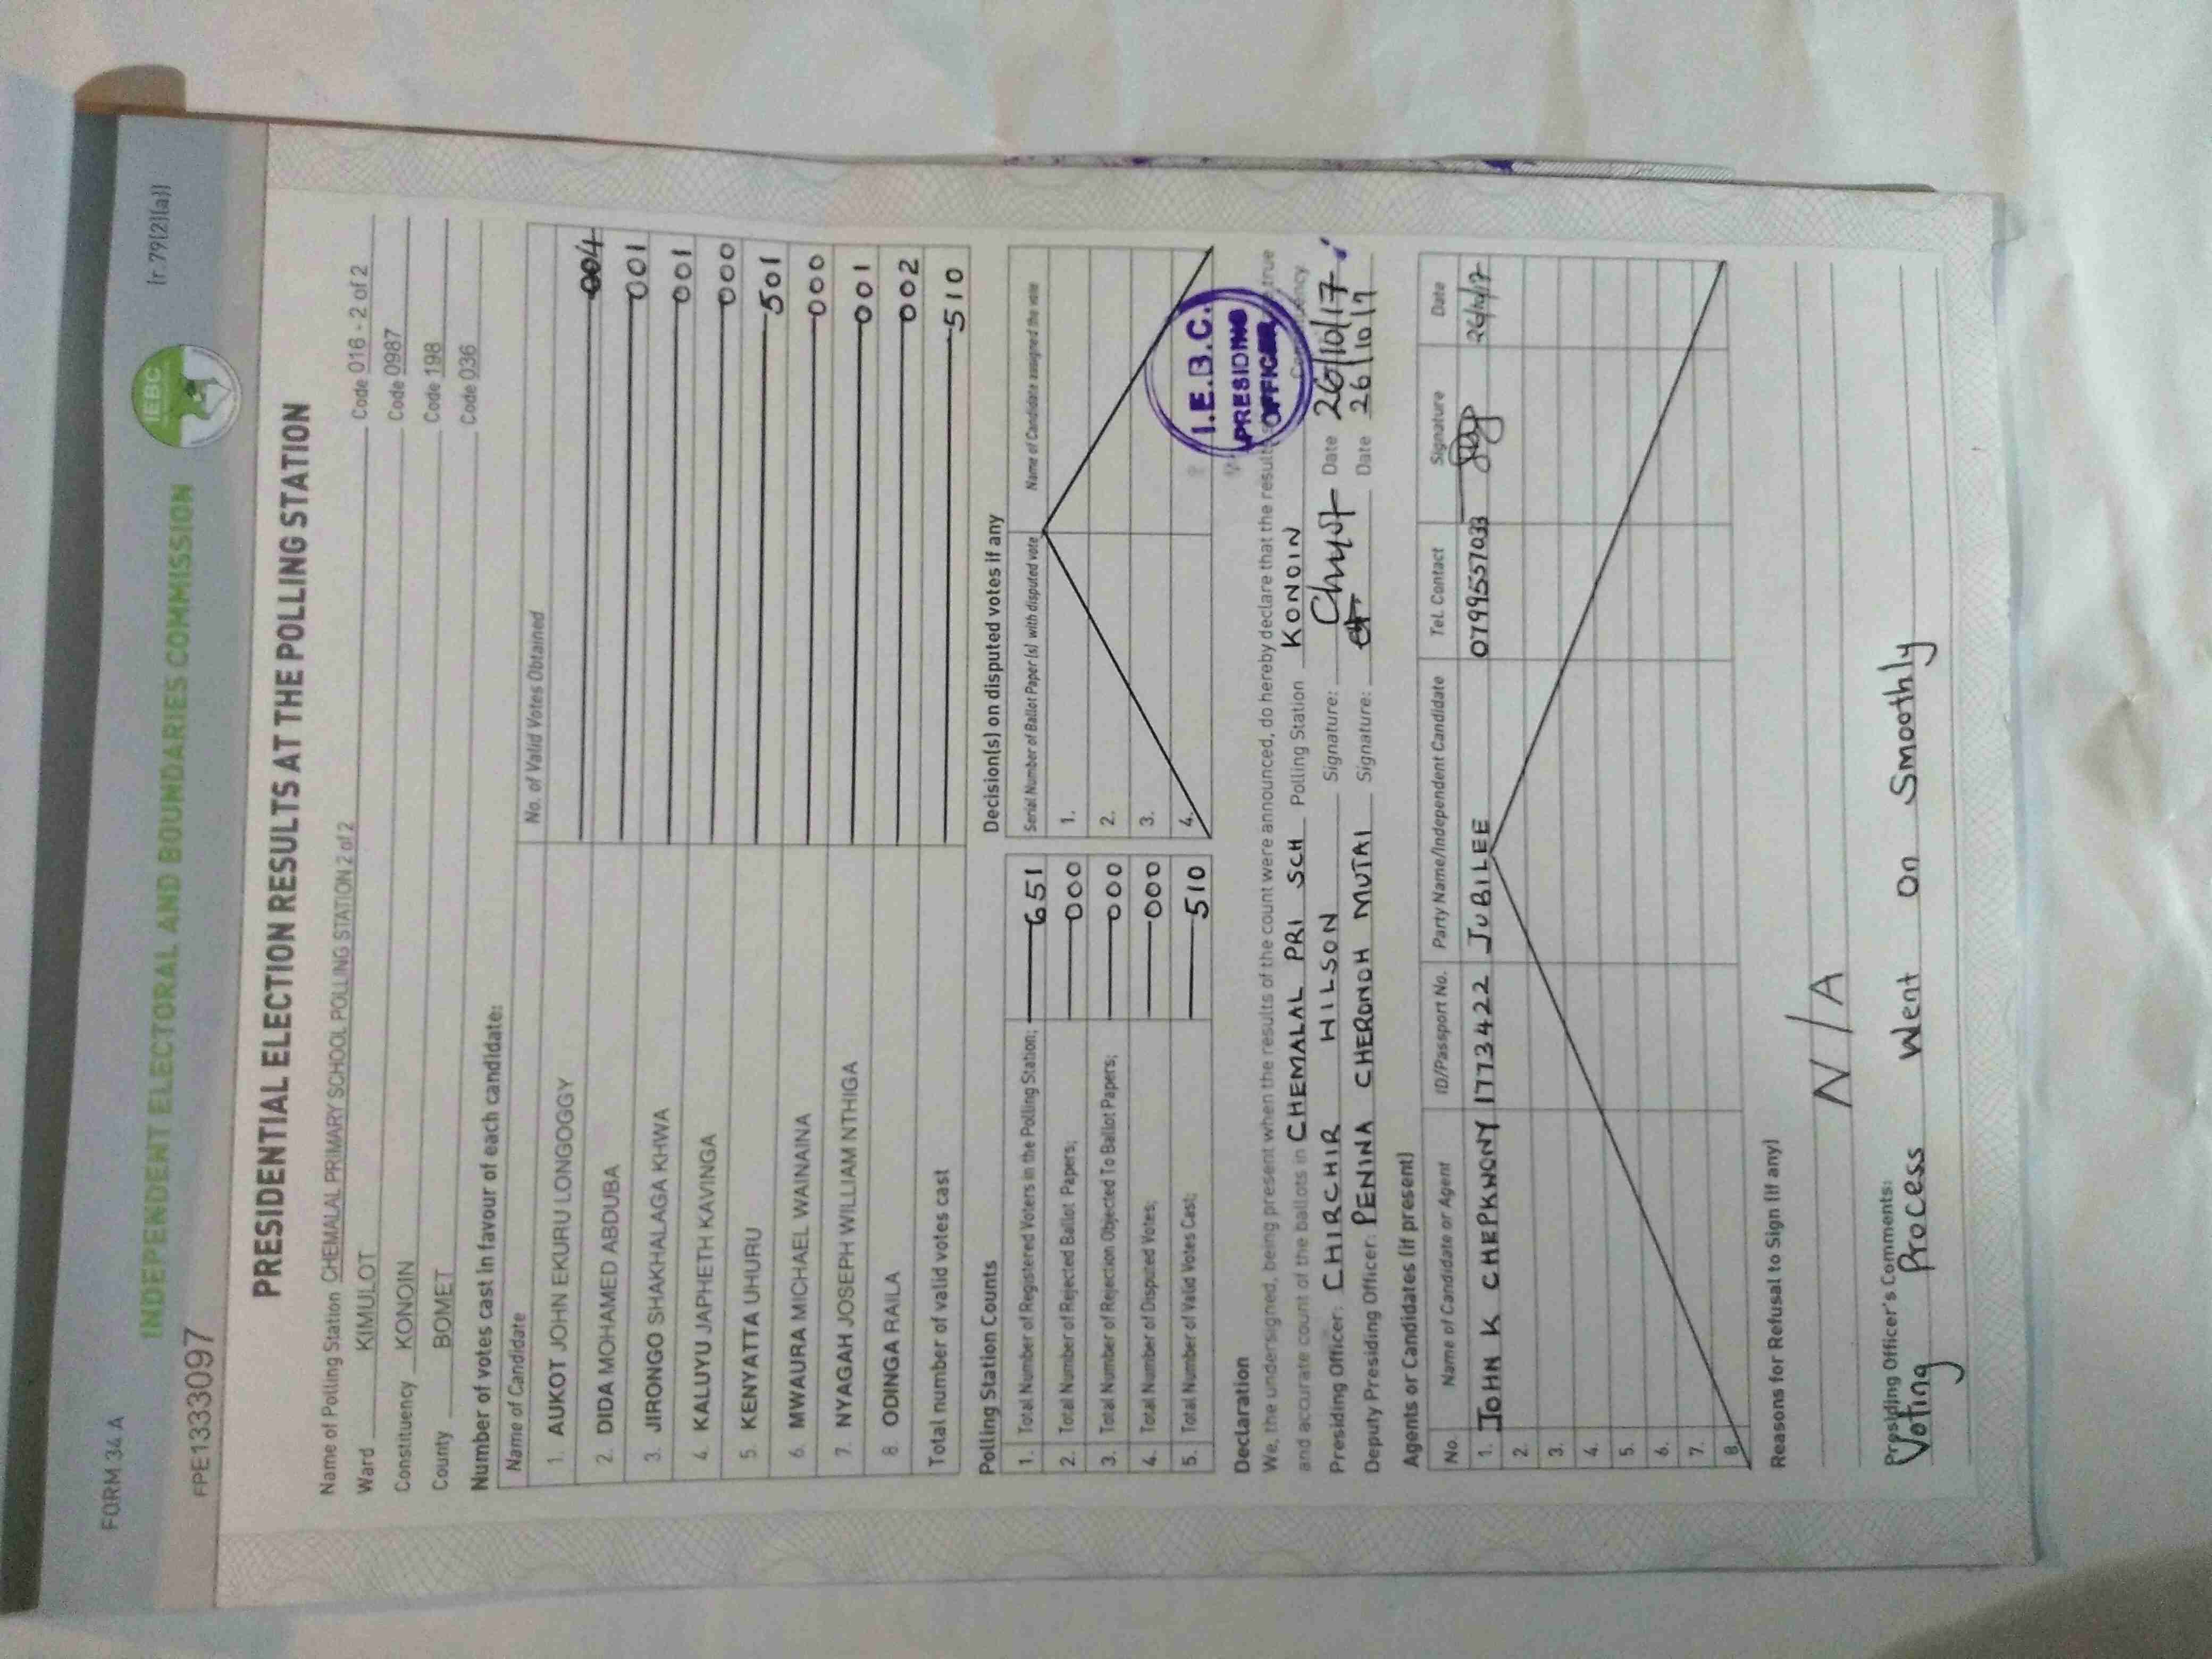 FORM 34 A
[r 79(2)(a)]
INDEPENDENT ELECTORAL AND BOUNDARIES COMMISSION
IEBC
FPE1333097
PRESIDENTIAL ELECTION RESULTS AT THE POLLING STATION
Name of Polling Station CHEMALAL PRIMARY SCHOOL POLLING STATION 2 of 2 Code 016 - 2 of 2
Ward KIMULOT Code 0987
Constituency KONOIN Code 198
County BOMET Code 036
Number of votes cast in favour of each candidate:
Name of Candidate No. of Valid Votes Obtained
1. AUKOT JOHN EKURU LONGOGGY 004
2. DIDA MOHAMED ABDUBA 001
3. JIRONGO SHAKHALAGA KHWA 001
4. KALUYU JAPHETH KAVINGA 000
5. KENYATTA UHURU 501
6. MWAURA MICHAEL WAINAINA 000
7. NYAGAH JOSEPH WILLIAM NTHIGA 001
8. ODINGA RAILA 002
Total number of valid votes cast 510
Polling Station Counts
1. Total Number of Registered Voters in the Polling Station; 651
2. Total Number of Rejected Ballot Papers; 000
3. Total Number of Rejection Objected To Ballot Papers; 000
4. Total Number of Disputed Votes; 000
5. Total Number of Valid Votes Cast; 510
Decision(s) on disputed votes if any
Serial Number of Ballot Paper (s) with disputed vote Name of Candidate assigned the vote
1.
2.
3.
4.
I.E.B.C.
PRESIDING
OFFICER
Declaration
We, the undersigned, being present when the results of the count were announced, do hereby declare that the results true
and accurate count of the ballots in CHEMALAL PRI SCH Polling Station KONOIN
Presiding Officer: CHIRCHIR HILSON Signature: Date 26/10/17
Deputy Presiding Officer: PENINA CHERONOH MUTAI Signature: Date 26/10/17
Agents or Candidates (if present)
No. Name of Candidate or Agent ID/Passport No. Party Name/Independent Candidate Tel. Contact Signature Date
1. JOHN K CHEPKWONY 11773422 JUBILEE 0799557033 26/10/17
2.
3.
4.
5.
6.
7.
8.
Reasons for Refusal to Sign (if any)
N/A
Presiding Officer's Comments:
Voting Process Went On Smoothly